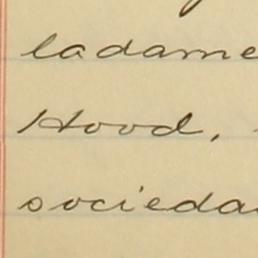 ladame
Hood,
socieda